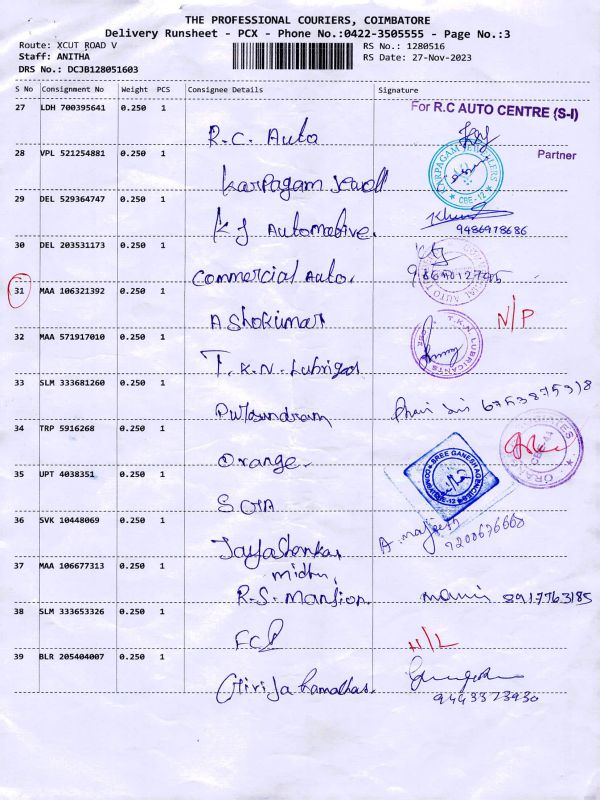 THE PROFESSIONAL COURIERS, COIMBATORE
Delivery Runsheet - PCX - Phone No.:0422-3505555 - Page No.:3
Route: XCUT ROAD V
RS No.: 1280516
Staff: ANITHA
RS Date: 27-Nov-2023
DRS No.: DCJB128051603
S No Consignment No Weight PCS Consignee Details Signature
27 LDH 700395641 0.250 1
For R.C AUTO CENTRE (S-I)
R.C. Auto
Partner
28 VPL 521254881 0.250 1
KARPAGAM JEWELLERS
* CBE-12 *
Karpagam Jewell
29 DEL 529364747 0.250 1
K J Automative.
9486978686
30 DEL 203531173 0.250 1
Commercial Auto.
31 MAA 106321392 0.250 1
Ashokumar
N/P
32 MAA 571917010 0.250 1
T.K.N. LUBRICANTS
T.K.N. Lubrigas
33 SLM 333681260 0.250 1
34 TRP 5916268 0.250 1
Orange
35 UPT 4038351 0.250 1
SREE GANESHAG
COIMBATORE-12
36 SVK 10448069 0.250 1
9200676668
Jayashankar
37 MAA 106677313 0.250 1
midhu,
R.S. Mansion.
8917763185
38 SLM 333653326 0.250 1
FCI
H/L
39 BLR 205404007 0.250 1
Girija
9443373930